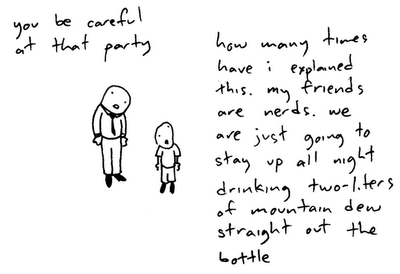 you be careful
at that party
how many times
have i explained
this. my friends
are nerds. we
are just going to
stay up all night
drinking two-liters
of mountain dew
straight out the
bottle